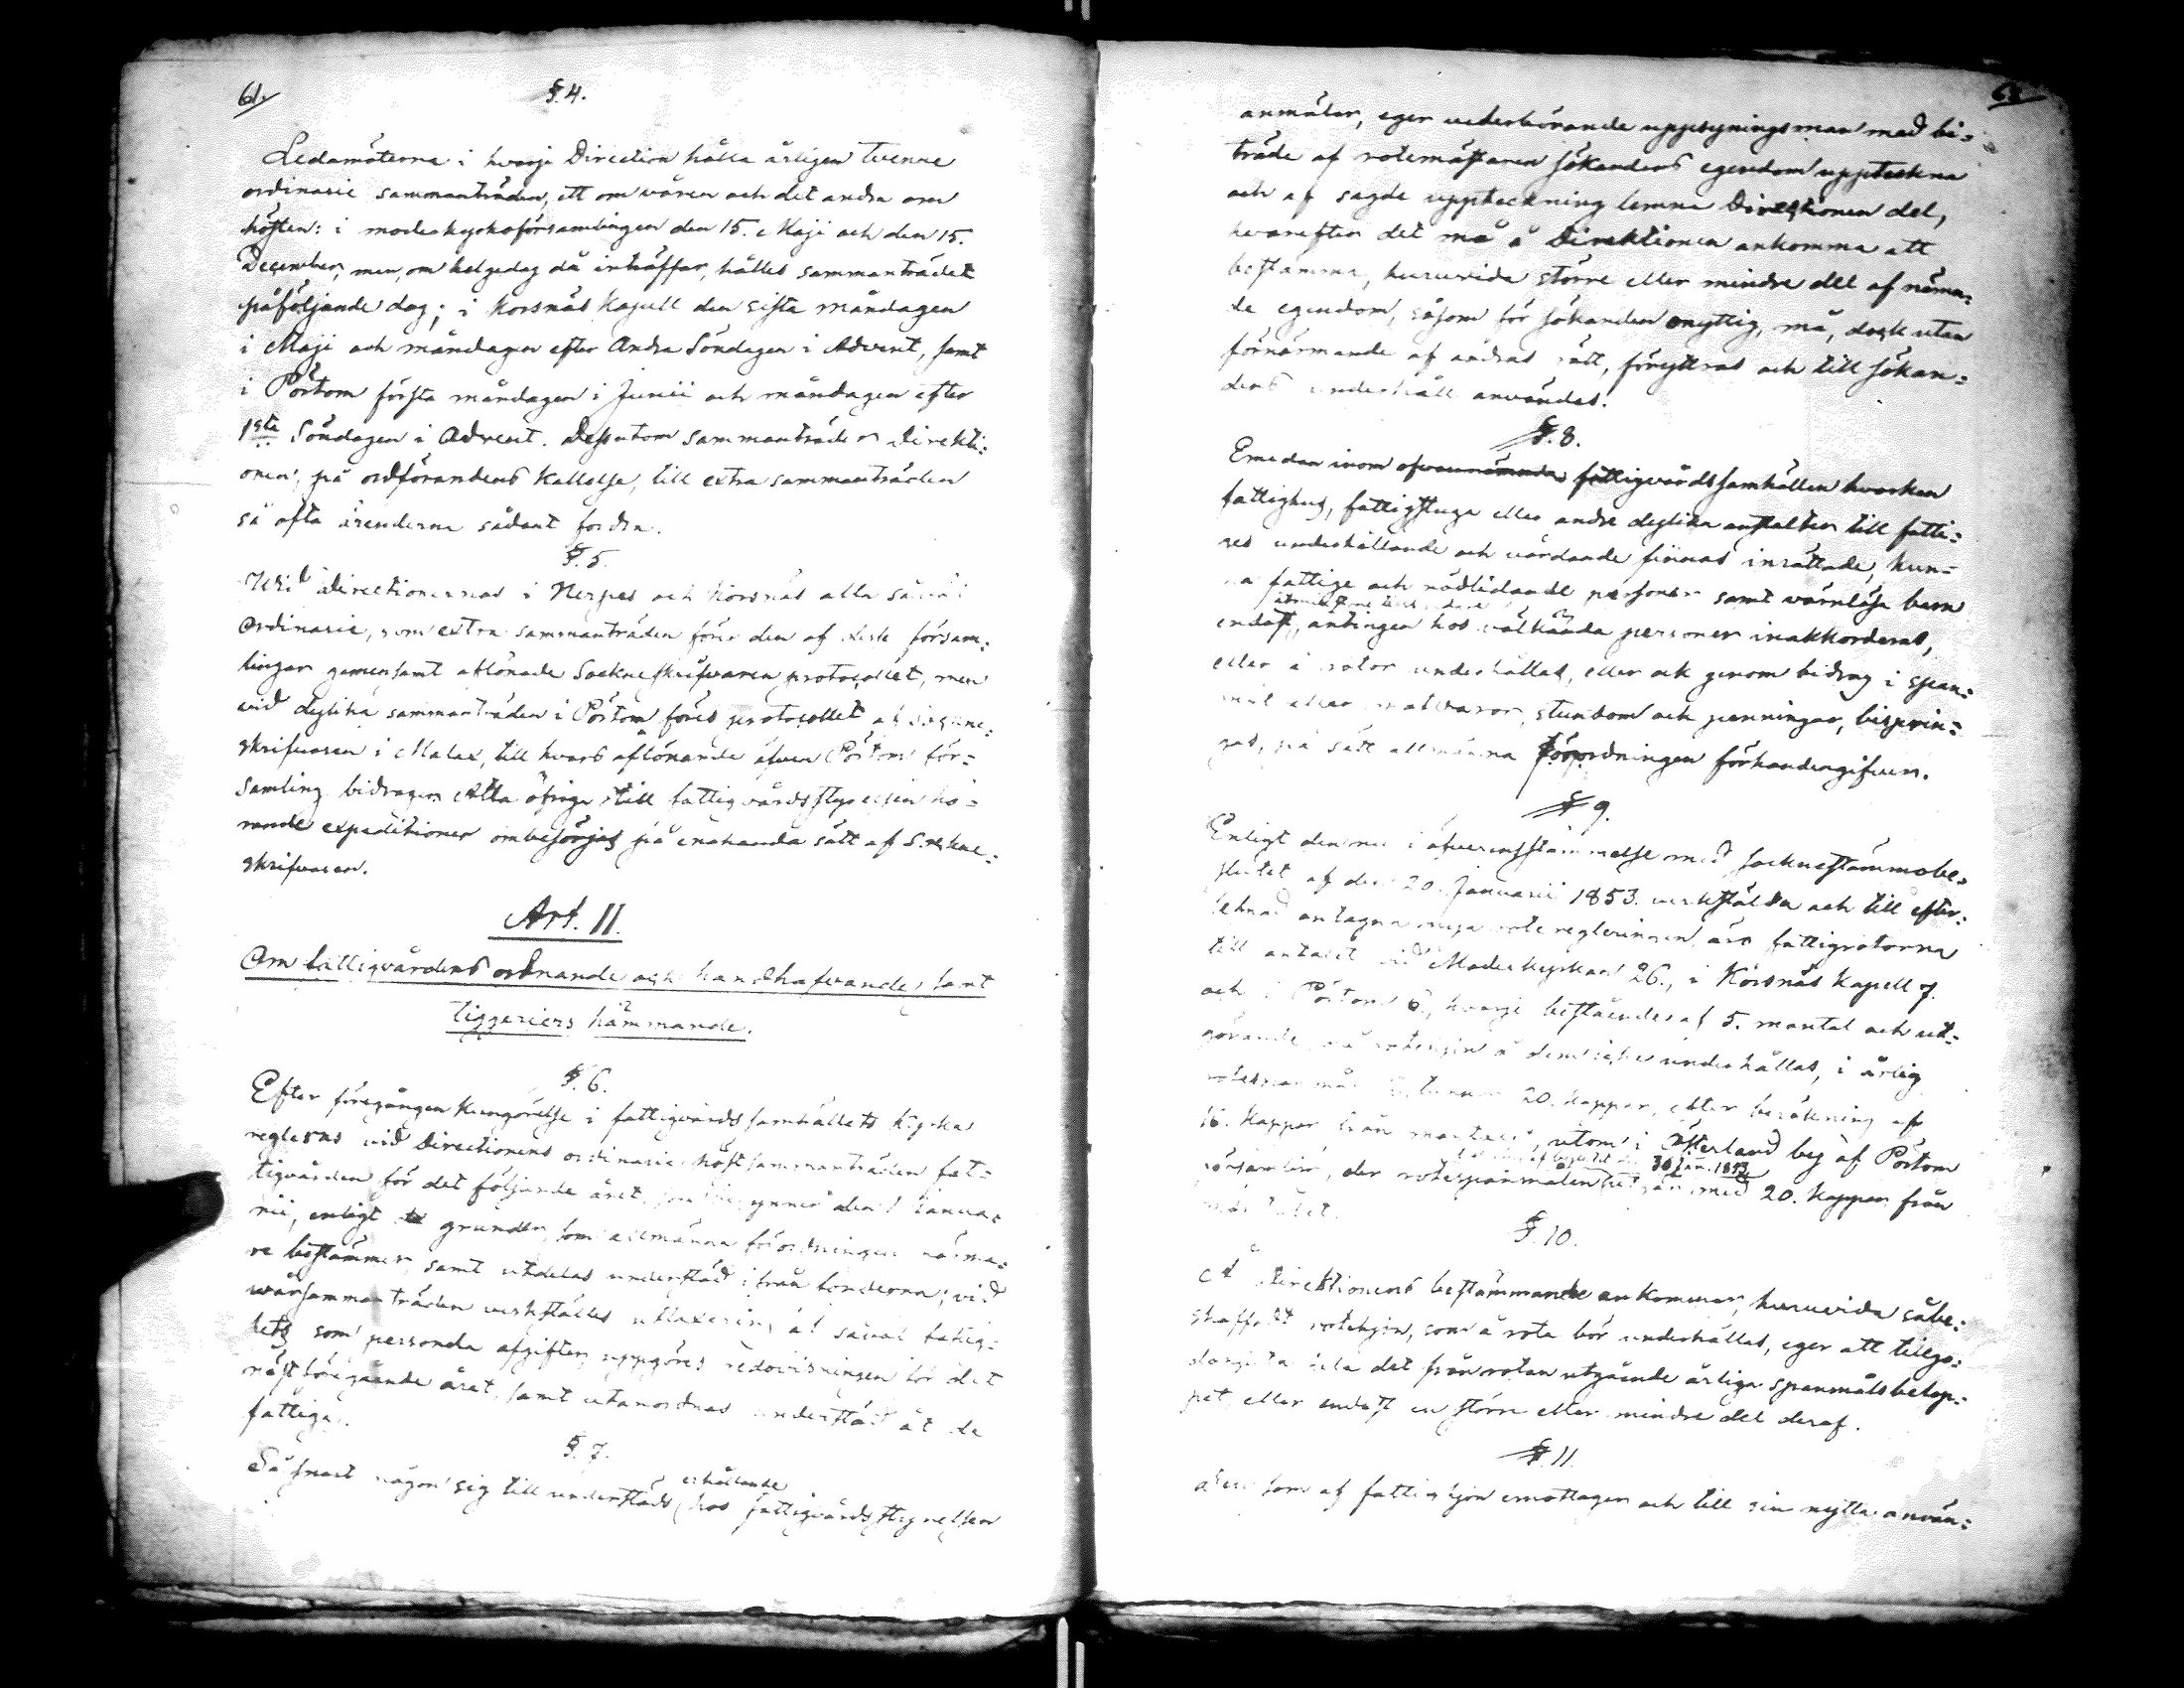 61.
§. 4.
Ledamöterna i hvarje Direction hålla årligen tvenne
ordinarie sammanträden, ett om våren och det andra om
hösten: i moderkyrkoförsamlingen den 15. Maji och den 15.
December, men, om helgedag då inträffar, hålles sammanträdet
påföljande dag; i Korsnäs Kapell den sista måndagen
i Maji och måndagen efter Andra Söndagen i Advent, samt
i Pörtom första måndagen i Junii och måndagen efter
1sta Söndagen i Advent. Dessutom sammanträder direkti=
onen, på ordförandens Kallelse, till extra sammanträden
så ofta ärenderna sådant fordra.
§. 5.
Wid Directionernas i Nerpes och Korsnäs alla såväl
ordinarie, som extra sammanträden förer den af försam=
lingar gemensamt aflönade Sockneskrifvaren protocollet, men
vid dylika sammanträden i Pörtom föres protocollet af Sockne=
skrifvaren i Malax, till hvars aflönande äfven Pörtom för=
samling bidrager. Alla öfriga till fattigvårdsstyrelsen hö=
rande expeditioner ombesörjas på enahanda sätt af Sockne=
skrifvaren.
Art. II.
Om fattigvårdens ordnande och handhafvande, samt
tiggeriers hämmande.
§. 6.
Efter föregången Kungörelse i fattigvårdssamhällets Kyrka
regleras vid Directionens ordinarie höstsammanträden fat=
tigvården för det följande året, som begynner den 1 Janua=
rii, enligt grunder, som allmänna förordningen närma=
re bestämmer, samt utdelas understöd ifrån fonderna; vid
vårsammanträden verkställes uttaxering af såväl fattig=
hets som personela afgifter, uppgöres redovisningen för det
nästföregående året, samt utanordnas understöd åt de
fattiga.
§. 7.
Så snart någon sig till understöds erhållande hos fattigvårdsstyrelsen
anmäler, eger vederbörande uppsyningsman med bi=
träde af rotemästaren sökandens egendom uppteckna
och af sagde uppteckning lemna Direktionen del,
hvarefter det må å Direktionen ankomma att
bestämma, huruvida större eller mindre del af nämn=
de egendom, såsom för sökanden onyttig, må, dock utan
förnärmande af andras rätt, föryttras och till sökan=
dens underhåll användas.
§. 8.
Emedan inom ofvannämnda fattigvårdssamhällen hvarken
fattighus, fattigstuga eller andre dylika anstalter till fatti=
ges underhållande och vårdande finnas inrättade, kun=
na fattige och nödlidande personer samt värnlösa barn
endast, antingen hos välkända personer inackorderas,
eller å rotor underhållas, eller ock genom bidrag i span=
mål eller matvaror, stundom och penningar, bisprin=
gas, på sätt allmänna förordningen förhandengifver.
§ 9.
Enligt den nu i öfverensstämmelse med sockneståmmobe=
slutet af den 20. Januarii 1853. verkstälda och till efter=
lefnad antagna nya rote regleringen, äro fattigrotorna
till antalet vid Moderkyrkan 26., i Korsnäs Kapell 7.
och i Pörtom 6., hvarje bestående af 5. mantal och ut=
görande, då rotehjon å dem icke underhållas, i årlig
rotespanmål 20. Kappar, efter beräkning af
16. Kappar från mantalet, utom i Österland by af Pörtom
30 Jan. 1853
församling, der rotespanmålen utgår med 20. Kappar från
mantalet.
§. 10.
Å Direktionens bestämmande ankommer, huruvida såbe=
skaffadt rotehjon, som å rote bör underhållas, eger att tillgo=
donjuta hela det från rotan utgående årliga spanmålsbelop=
pet eller endast en större eller mindre del deraf.
§. 11.
Den som af fattighjon emottagen och till sin nytta använ=